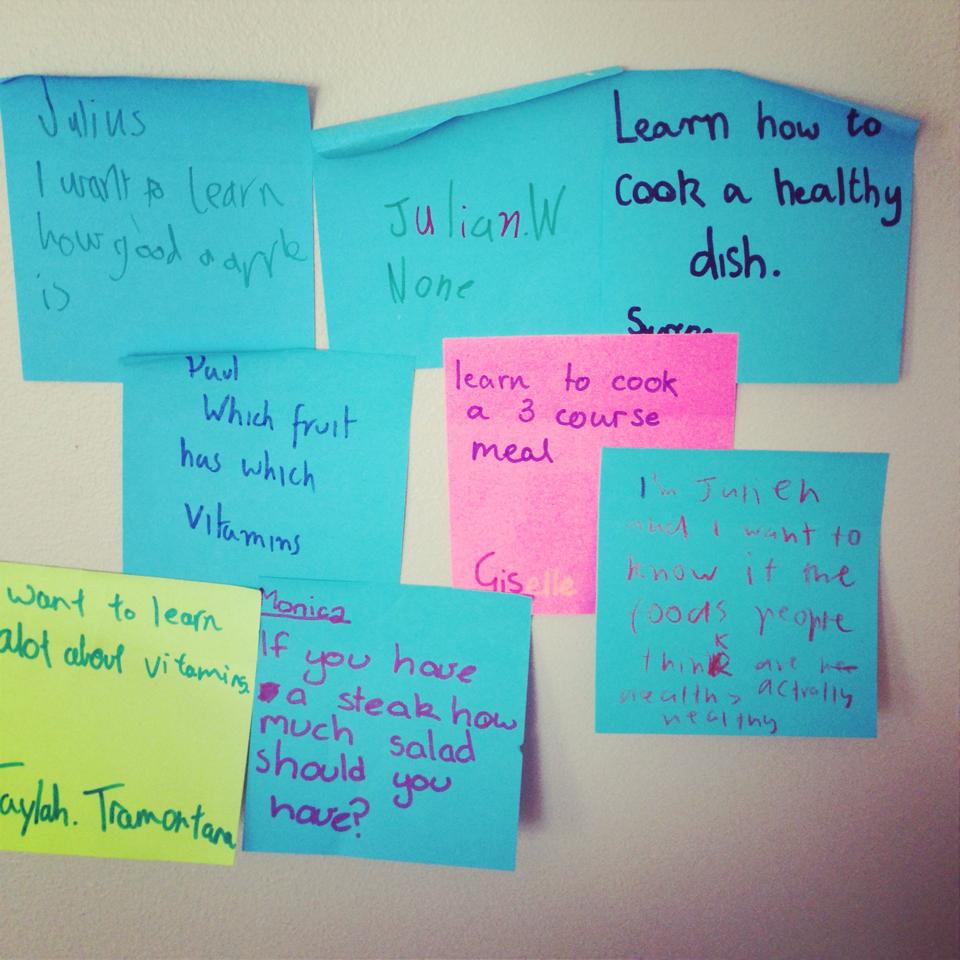 Julius
I want to learn
how good a apple
is
Julian.W
None
Learn how to
cook a healthy
dish.
Paul
Which fruit
has which
Vitamins
learn to cook
a 3 course
meal
Giselle
I'm Julieh
and I want to
know if the
foods people
think are he
healthy actually
healthy
want to learn
alot about vitamins
Taylah. Tramontana
Monica
If you have
a steak how
much salad
should you
have?